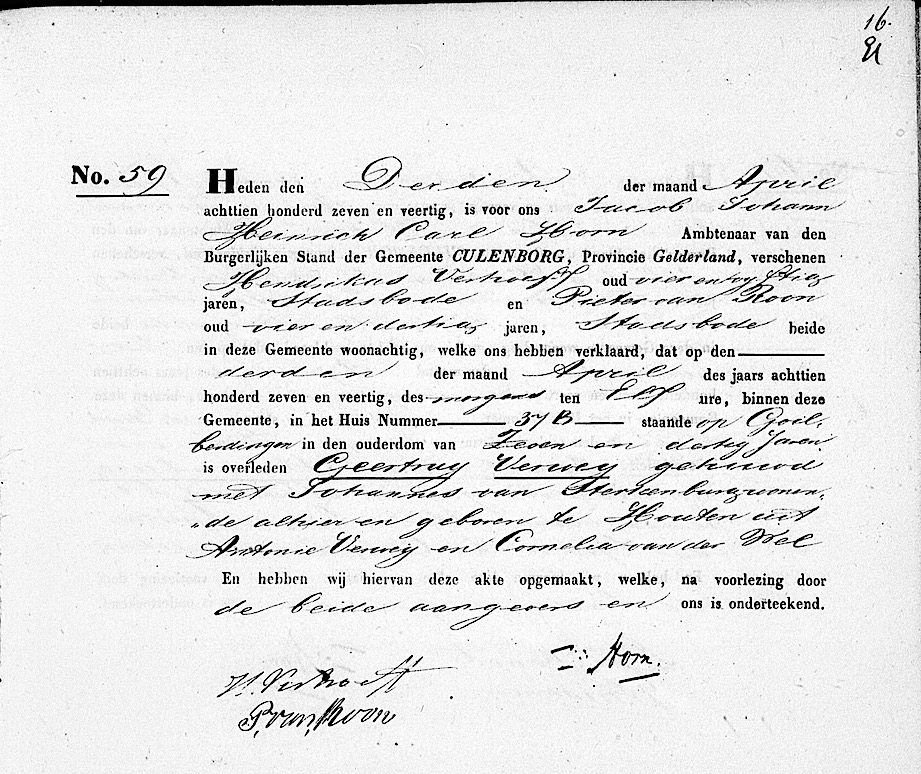 16.
No. 59 Heden den Derden der maand April
achttien honderd zeven en veertig, is voor ons Jacob Johann
Heinrich Carl Horn Ambtenaar van den
Burgerlijken Stand der Gemeente CULENBORG, Provincie Gelderland, verschenen
Hendrikus Verhoeff oud vier en vyftig
jaren, Stadsbode en Pieter van Roon
oud vier en dertig jaren, Stadsbode beide
in deze Gemeente woonachtig, welke ons hebben verklaard, dat op den
derden der maand April des jaars achttien
honderd zeven en veertig, des morgens ten Elf ure, binnen deze
Gemeente, in het Huis Nummer 37 B staande op Goil-
berdingen in den ouderdom van Zeven en dertig Jaren
is overleden Geertruy Verwey gehuwd
met Johannes van Sterkenburg wonen-
„de alhier en geboren te Houten uit
Antonie Verwey en Cornelia van der Wel
En hebben wij hiervan deze akte opgemaakt, welke, na voorlezing door
de beide aangevers en ons is onderteekend.
Horn.
H. Verhoeff
P. van Roon